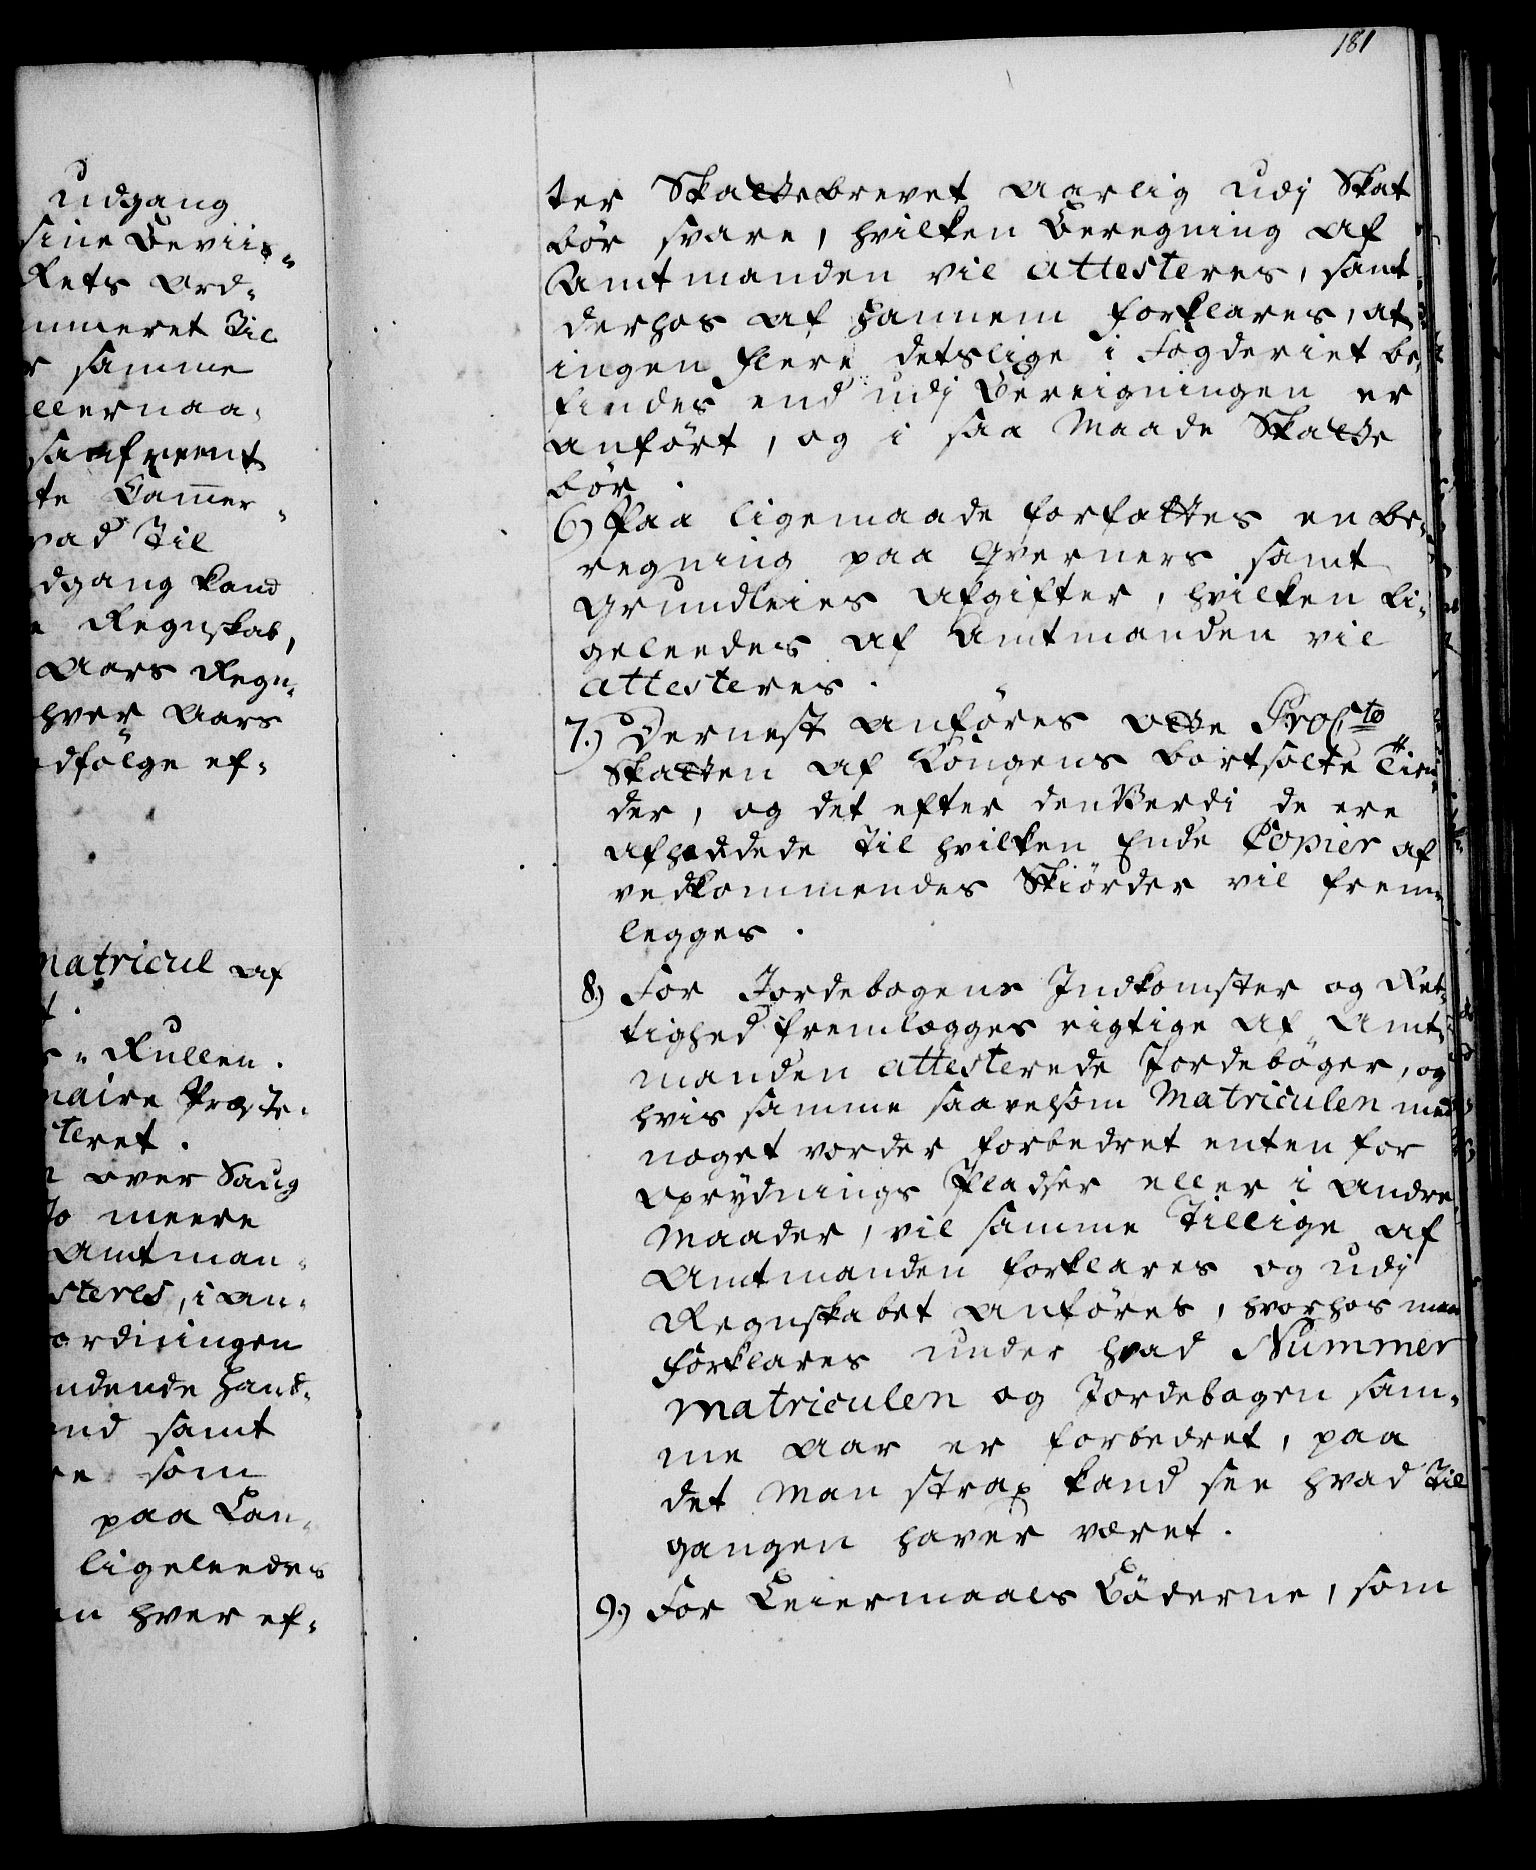 181
udgang
sine Bevii-
Rets Ord-
mmeret Til
r samme
llernaa-
te Cammer-
vad Til
dgang kand
e Regnskab,
Aars Regn-
hver Aars
dfølge ef-
Matricul af
s- Rullen.
naire Præste-
teret.
n over Saug
to meere
Amtman-
steres, i an-
ordningen
ndende Hand-
end samt
re som
paa Lan-
ligeleedes
en hver ef-
ter Skattebrevet aarlig udj Skat
bör svare, hvilken Beregning af
Amtmanden vil attesteres, samt
derhos af hannem forklares, at
ingen flere detslige i Fogderiet be-
findes end udj Bereigningen er
anfört, og i saa Maade Skatte
bör.
6) Paa ligemaade forfattes en be-
regning paa Qverners samt
Grundleies Afgifter, hvilken li-
geleedes af Amtmanden vil
attesteres.
7.) Dernest anföres otte Proc:to
Skatten af Kongens bortsolte Tien-
der, og det efter den Værdi de ere
afhændede til hvilken Ende Copier af
vedkommendes Skiörder vil frem-
legges.
8.) For Jordebogens Indkomster og Ret-
tighed fremlægges rigtige af Amt-
manden attesterede Jordebøger, og
hvis samme saavelsom Matriculen med
noget vorder forbedret enten for
Oprydnings Pladser eller i andre
Maader, vil samme tillige af
Amtmanden forklares og udj
Regnskabet anföres, hvorhos man
forklares under hvad Nummer
Matriculen og Jordebogen sam-
me Aar er forbedret, paa
det Man strax kand see hvad Til
gangen haver været.
9.) For Leiermaals Bøderne, som